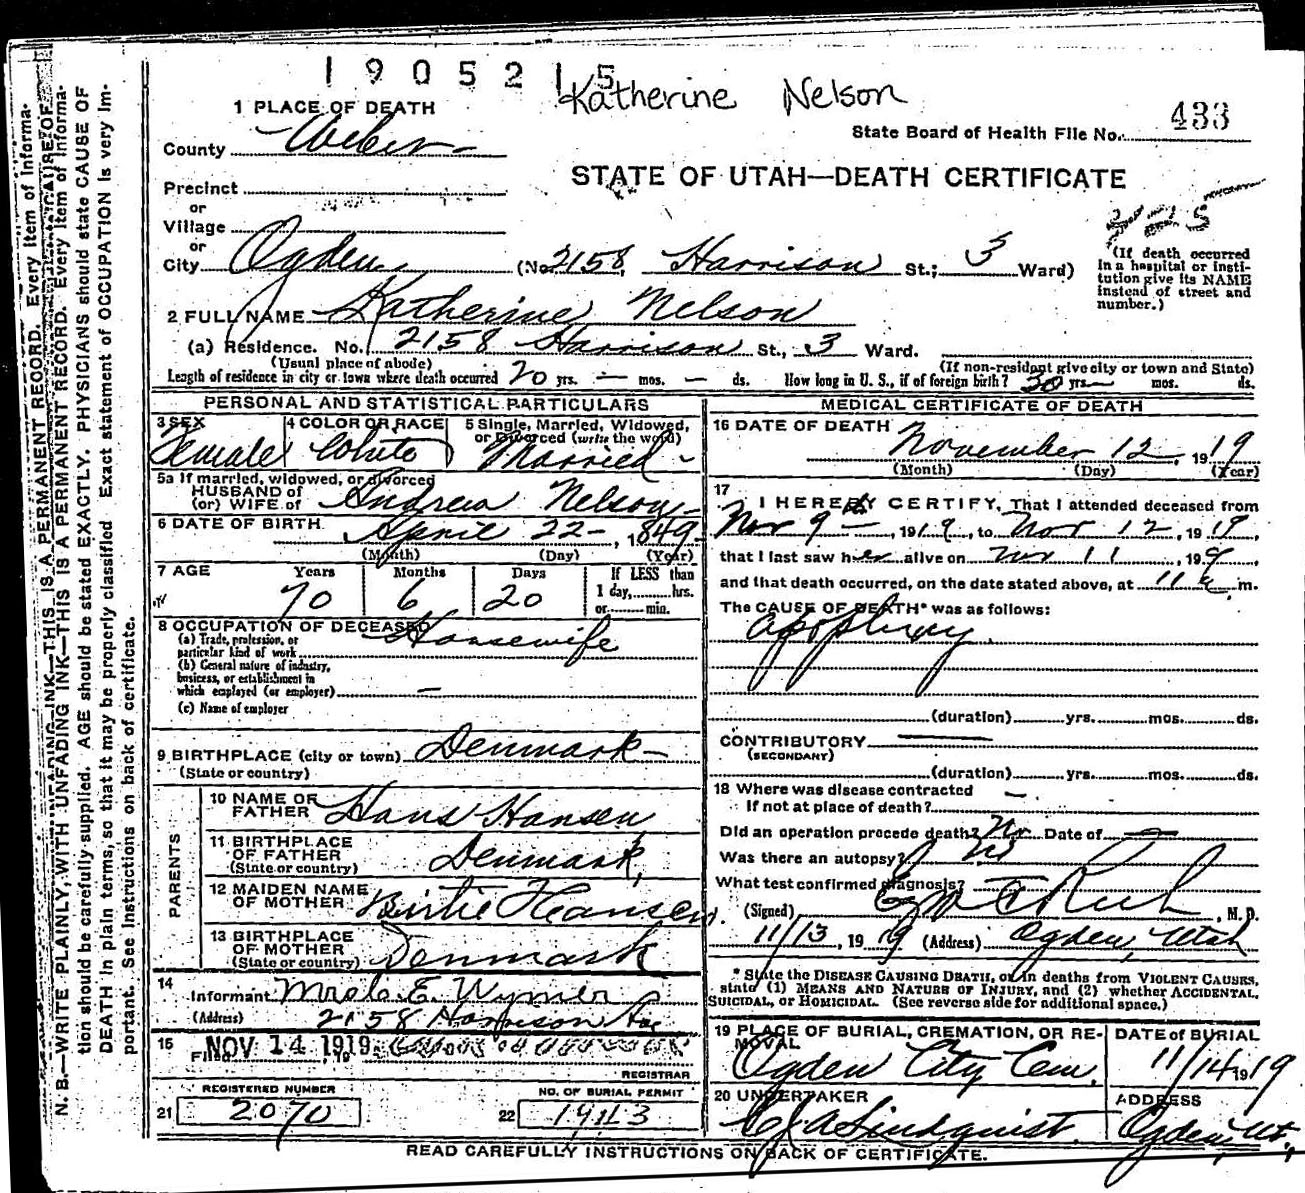 1905215
Katherine Nelson
433
State Board of Health File No.
1 PLACE OF DEATH
County Weber
STATE OF UTAH—DEATH CERTIFICATE
Precinct
or
Village
or
City Ogden (No. 2158, Harrison St.; 3 Ward)
(If death occurred in a hospital or insti-
tution give its NAME
instead of street and
number.)
2 FULL NAME Katherine Nelson
(a) Residence. No. 2158 Harrison St., 3 Ward.
(Usual place of abode) (If non-resident give city or town and State)
Length of residence in city or town where death occurred 20 yrs. — mos. — ds. How long in U. S., if of foreign birth? 30 yrs. — mos. ds.
PERSONAL AND STATISTICAL PARTICULARS
3 SEX Female
4 COLOR OR RACE White
5 Single, Married, Widowed,
or Divorced (write the word)
Married
5a If married, widowed, or divorced
HUSBAND of
(or) WIFE of Andrew Nelson
6 DATE OF BIRTH April 22 — , 1849
(Month) (Day) (Year)
7 AGE Years Months Days If LESS than
1 day, hrs.
or min.
70 6 20
8 OCCUPATION OF DECEASED
(a) Trade, profession, or
particular kind of work Housewife
(b) General nature of industry,
business, or establishment in
which employed (or employer) —
(c) Name of employer
9 BIRTHPLACE (city or town) Denmark —
(State or country)
PARENTS
10 NAME OF
FATHER Hans Hansen
11 BIRTHPLACE
OF FATHER
(State or country) Denmark,
12 MAIDEN NAME
OF MOTHER Hansen
13 BIRTHPLACE
OF MOTHER
(State or country) Denmark
14
Informant Mrs C. E. Wymer
(Address) 2158 Harrison Ave
15
Filed NOV 14 1919, 19
REGISTRAR
REGISTERED NUMBER
21 2070
NO. OF BURIAL PERMIT
22
MEDICAL CERTIFICATE OF DEATH
16 DATE OF DEATH
November 12, 1919
(Month) (Day) (Year)
17
I HEREBY CERTIFY, That I attended deceased from
Nov 9 —, 1919, to Nov 12, 1919,
that I last saw her alive on Nov 11, 199,
and that death occurred, on the date stated above, at 11 a m.
The CAUSE OF DEATH* was as follows:
Apoplexy
(duration) yrs. mos. ds.
CONTRIBUTORY —
(SECONDARY)
(duration) yrs. mos. ds.
18 Where was disease contracted
If not at place of death? —
Did an operation precede death? No Date of —
Was there an autopsy? No
What test confirmed diagnosis? —
(Signed) Rich, M. D.
11/13, 1919 (Address) Ogden, Utah
* State the DISEASE CAUSING DEATH, or in deaths from VIOLENT CAUSES,
state (1) MEANS AND NATURE OF INJURY, and (2) whether ACCIDENTAL,
SUICIDAL, or HOMICIDAL. (See reverse side for additional space.)
19 PLACE OF BURIAL, CREMATION, OR RE-
MOVAL
Ogden City Cem.
DATE of BURIAL
11/14 1919
20 UNDERTAKER
Lindquist.
ADDRESS
Ogden, Ut.,
READ CAREFULLY INSTRUCTIONS ON BACK OF CERTIFICATE.
N. B.—WRITE PLAINLY, WITH UNFADING INK—THIS IS A PERMANENT RECORD. Every item of informa-
tion should be carefully supplied. AGE should be stated EXACTLY. PHYSICIANS should state CAUSE OF
DEATH in plain terms, so that it may be properly classified. Exact statement of OCCUPATION is very im-
portant. See instructions on back of certificate.